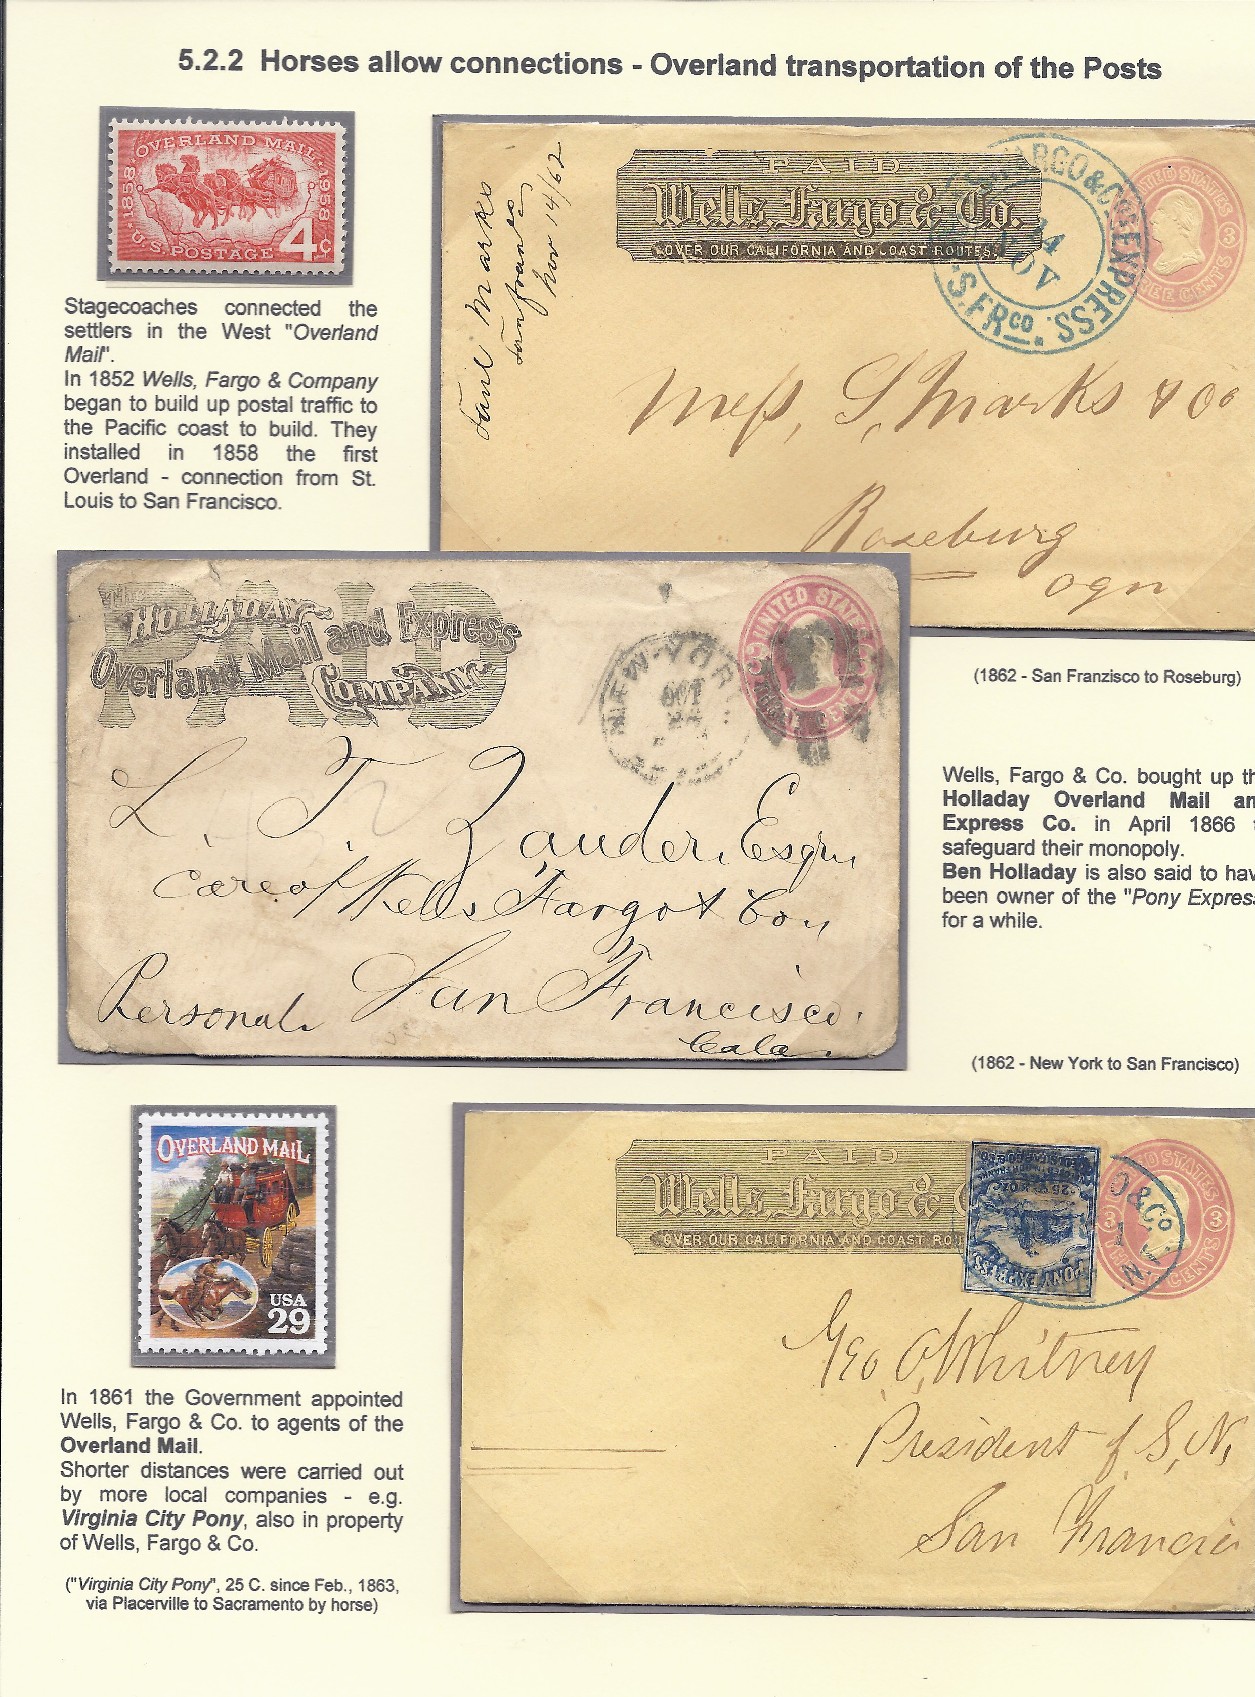 5.2.2 Horses allow connections - Overland transportation of the Posts
OVERLAND MAIL
1858
1958
U.S. POSTAGE
4c
Stagecoaches connected the
settlers in the West "Overland
Mail".
In 1852 Wells, Fargo & Company
began to build up postal traffic to
the Pacific coast to build. They
installed in 1858 the first
Overland - connection from St.
Louis to San Francisco.
PAID
Wells, Fargo & Co.
OVER OUR CALIFORNIA AND COAST ROUTES.
FARGO & Co's EXPRESS
14
NOV
S. FRco.
UNITED STATES
3
THREE CENTS
Marks
Nov 14/62
Mess, S, Marks & Co
Roseburg
Ogn
(1862 - San Franzisco to Roseburg)
PAID
The
HOLLADAY
Overland Mail and Express
COMPANY
NEW-YORK
OCT
UNITED STATES
3
L. T. Zander, Esqru
care of Wells Fargo & Co
San Francisco.
Personal.
Cala.
Wells, Fargo & Co. bought up th
Holladay Overland Mail an
Express Co. in April 1866 t
safeguard their monopoly.
Ben Holladay is also said to hav
been owner of the "Pony Express
for a while.
(1862 - New York to San Francisco)
OVERLAND MAIL
USA
29
In 1861 the Government appointed
Wells, Fargo & Co. to agents of the
Overland Mail.
Shorter distances were carried out
by more local companies - e.g.
Virginia City Pony, also in property
of Wells, Fargo & Co.
("Virginia City Pony", 25 C. since Feb., 1863,
via Placerville to Sacramento by horse)
PAID
Wells, Fargo & C
OVER OUR CALIFORNIA AND COAST ROU
PONY EXPRESS
O & Co
N.
UNITED STATES
3
3
THREE CENTS
Geo O, Whitney
President of S, N,
San Francis